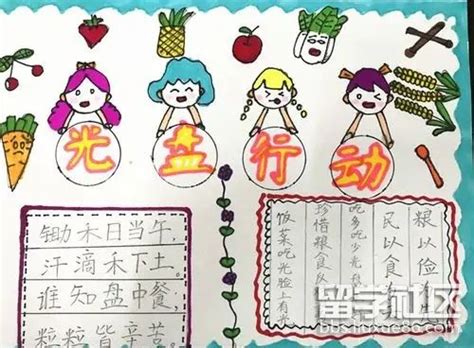 光盘行动
锄禾日当午,
汗滴禾下土。
谁知盘中餐,
粒粒皆辛苦。
粮以俭
民以食
吃多吃少
珍惜粮食
饭菜吃光脸上有
留学社区